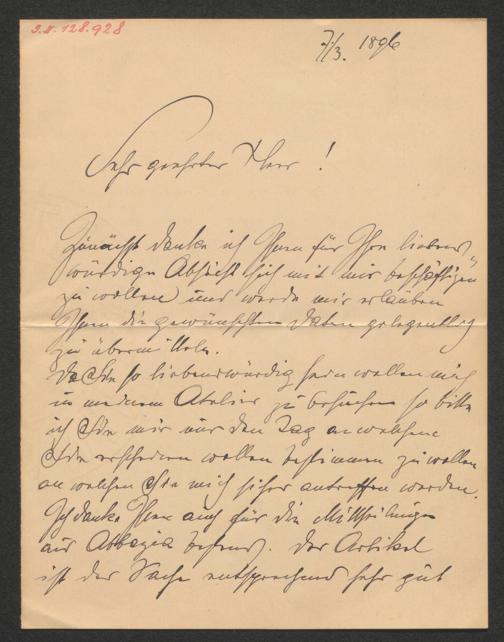 I.N. 128.928
7/3. 1896
Sehr geehrter Herr!
Zunächst danke ich Ihnen für Ihre liebens-
würdige Absicht sich mit mir beschäftigen
zu wollen und werde mir erlauben
Ihnen die gewünschten Daten gelegentlich
zu übermitteln.
Da Sie so liebenswürdig sein wollen mich
in meinem Atelier zu besuchen so bitte
ich Sie mir nur den Tag an welchem
Sie erscheinen wollen bestimmen zu wollen
an welchem Sie mich sicher antreffen werden.
Ich danke Ihnen auch für die Mittheilungen
aus Abbazia bestens. Der Artikel
ist der Sache entsprechend sehr gut